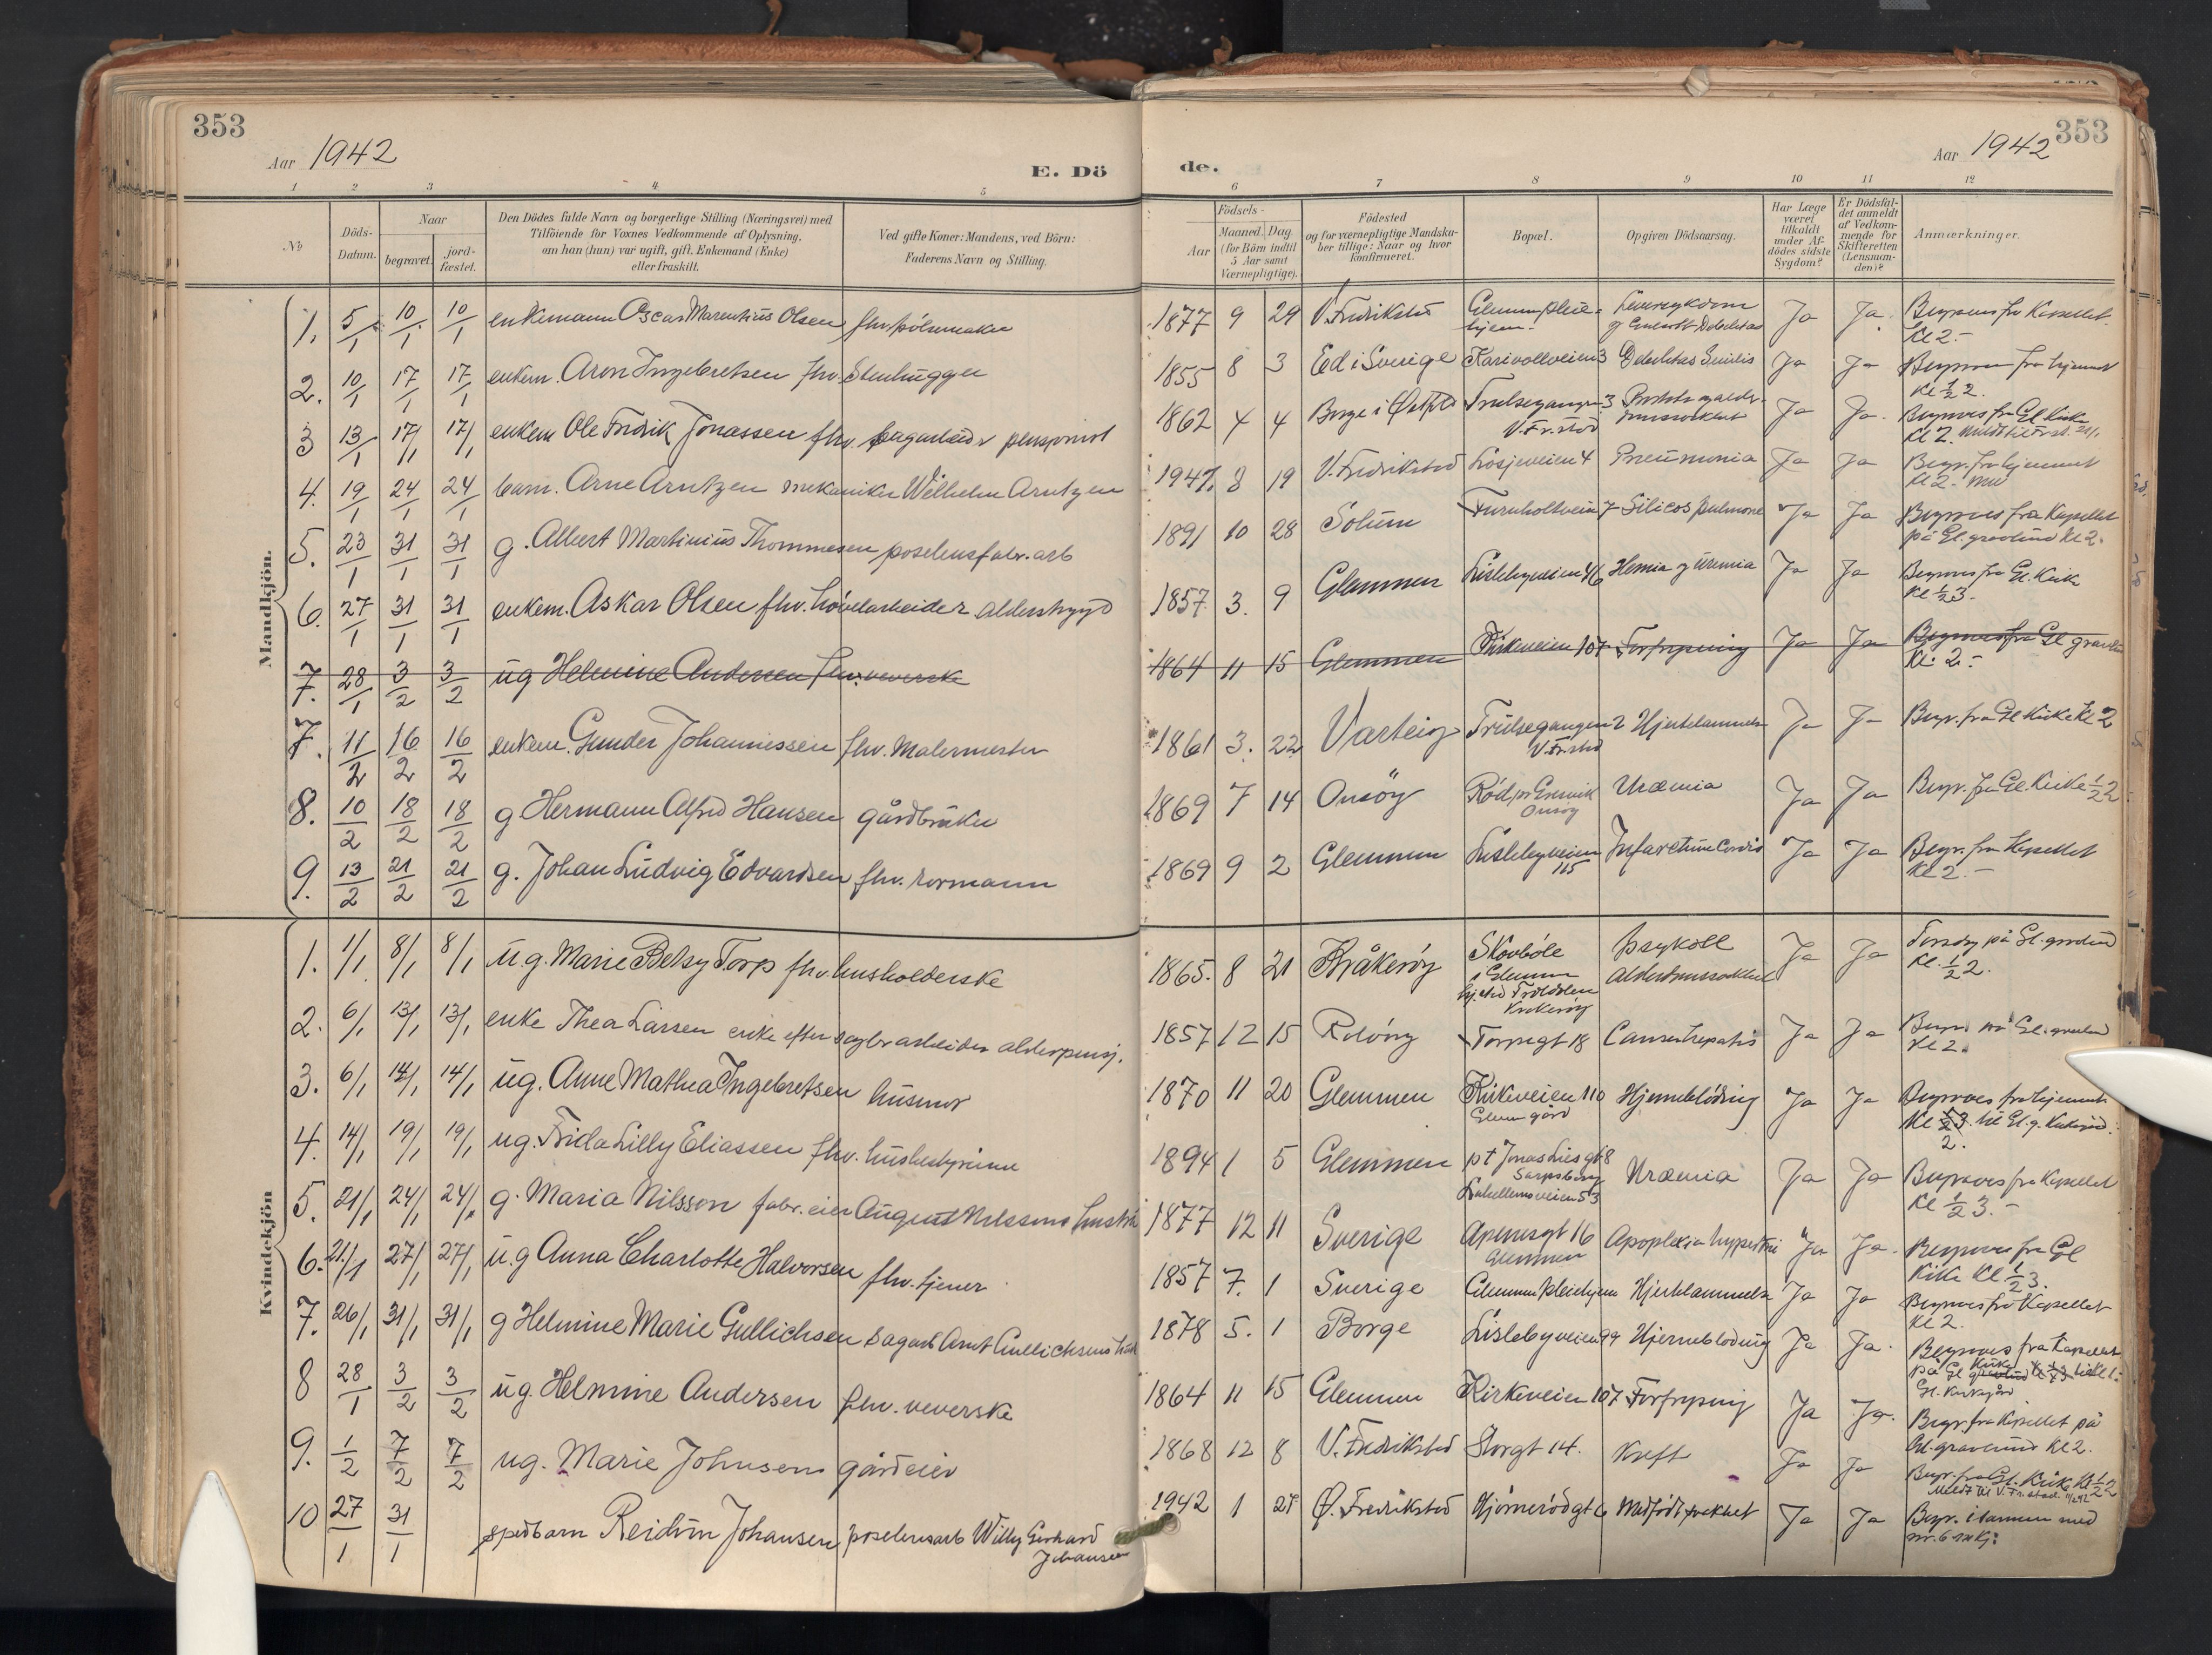 353
Aar 1942
E. Dö
de.
Aar 1942
353
1 2 3 4 5 6 7 8 9 10 11 12
№
Döds-
Datum.
Naar
begravet.
jord-
fæstet.
Den Dödes fulde Navn og borgerlige Stilling (Næringsvei) med
Tilföiende for Voxnes Vedkommende af Oplysning,
om han (hun) var ugift, gift, Enkemand (Enke)
eller fraskilt.
Ved gifte Koner: Mandens, ved Börn:
Faderens Navn og Stilling.
Födsels-
Aar
Maaned. Dag
(for Börn indtil
5 Aar samt
Værnepligtige).
Födested
og for værnepligtige Mandska-
ber tillige: Naar og hvor
konfirmeret.
Bopæl.
Opgiven Dödsaarsag.
Har Læge
været
tilkaldt
under Af-
dödes sidste
Sygdom?
Er Dödsfal-
det anmeldt
af Vedkom-
mende for
Skifteretten
(Lensman-
den)?
Anmærkninger.
Mandkjön.
1. 5/1 10/1 10/1 enkemann Oscar Marentius Olsen fhv. pölsemaker 1877 9 29 V. Fredrikstad Glemmen pleie-
hjem. Leversykdom Ja Ja. Begraves fra Kapellet
Kl 2.-
2. 10/1 17/1 17/1 enkem. Aron Ingebretsen fhv. Stenhugger 1855 8 3 Ed i Sverige Karivollveien 3 Debilitas Senilis Ja Ja fra hjemmet
Kl ½ 2.
3 13/1 17/1 17/1 enkem Ole Fredrik Jonassen fhv. sagarbeider pensjonist 1862 4 4 Borge i Østfold Trulsegangen 3
V. Fr.stad Ja Ja. Begraves fra Gl Kirke
Kl 2.
4. 19/1 24/1 24/1 barn. Arne Arntzen mekaniker Wilhelm Arntzen 1941. 8 19 V. Fredrikstad Losjeveien 4 Pneumonia Ja Ja Begr. fra hjemmet
Kl 2.
5. 23/1 31/1 31/1 g. Albert Martinius Thommesen poselensfabr. arb 1891 10 28 Solum Furuholtveien 7 Silicos pulmone Ja Ja Begraves fra Kapellet
på Gl. gravlund Kl 2.
6. 27/1 31/1 31/1 enkem. Askar Olsen fhv. hövelarbeider alderstrygd 1857 3. 9 Glemmen Lislebyveien 46 Uremia Ja Ja Begraves fra Gl. Kirke
Kl ½ 3.
7. 28/1 3/2 3/2 ug Helmine Andersen fhv. veverske 1864 11 15 Glemmen Kirkeveien 107 Forfrysning Ja Ja Begraves fra Gl gravlund
Kl. 2.-
7. 11/2 16/2 16/2 enkem. Gunder Johannessen fhv. Malermester 1861 3. 22 Varteig Trulsegangen 2
V. Fr.stad Hjertelammelse Ja Ja Begr. fra Gl Kirke Kl 2
8. 10/2 18/2 18/2 g Hermann Alfred Hansen gårdbruker 1869 7 14 Onsöy Röd pr Gressvik
Onsöy Uræmia Ja Ja Begr. fra Gl. Kirke ½ 2
9. 13/2 21/2 21/2 g. Johan Ludvig Edvardsen fhv. formann 1869 9 2 Glemmen Lislebyveien
115 Infarctum Cordis Ja Ja Begr. fra Kapellet
Kl 2.-
Kvindekjön
1. 1/1 8/1 8/1 u.g. Marie Betsy Torp fhv. husholderske 1865. 8 21 Kråkeröy Skovböle
i Glemmen Ja Ja på Gl. gravlund
Kl. ½ 2.
2. 6/1 13/1 13/1 enke Thea Larsen enke efter sagbrarbeider alderspensj. 1857 12 15 Rolvsöy Torpegt 18 Cancer hepatis Ja Ja på Gl. gravlund
Kl 2.
3. 6/1 14/1 14/1 ug. Anne Mathea Ingebretsen husmor 1870 11 20 Glemmen Kirkeveien 110
Glem gård Hjerneblödning Ja Ja Begraves fra hjemmet
Kl ½ 3. til Gl. g. Kirkegård.
2.
4. 14/1 19/1 19/1 ug. Frida Lilly Eliassen fhv. husbestyrinne 1894 1 5 Glemmen pt Jonas Lies gt 8
Sarpsborg
53 Uræmia Ja Ja Begraves fra Kapellet
Kl ½ 3.-
5. 21/1 24/1 24/1 g. Maria Nilsson fabr. eier August Nilssons hustru 1877 12 11 Sverige Apenesgt 16
Glemmen Apoplexia Ja Ja. Begraves fra Gl
Kirke Kl. ½ 3.
6. 21/1 27/1 27/1 u.g Anna Charlotte Halvorsen fhv. tjener 1857 7. 1 Sverige Glemmen pleiehjem Hjertelammelse Ja Ja Begraves fra Kapellet
Kl 2.
7. 26/1 31/1 31/1 g Helmine Marie Gullichsen sagarb Arnt Gullichsens 1878 5. 1 Borge Lislebyveien 99 Hjerneblödning Ja Ja. Begraves fra Kapellet
på Gl
Gl. Kirkegård
8 28/1 3/2 3/2 ug. Helmine Andersen fhv. veverske 1864 11 15 Glemmen Kirkeveien 107 Forfrysning Ja Ja. Begr. fra Kapellet på
Gl. gravlund Kl 2.
9. 1/2 7/2 7/2 ug. Marie Johnsen gårdeier 1868 12 8 V. Fredrikstad Storgt 14. Kreft Ja Ja Begr. fra Gl. Kirke Kl ½ 2
Meldt til V. Fr. stad.
10 27/1 31/1 spedbarn Reidun Johansen poselensarb Willy Gerhard
Johansen 1942 1 27 Ø. Fredrikstad Hjörnerödgt 6 Medfödt svakhet Ja Ja Begr. i sammen med
nr. 6 m kj: